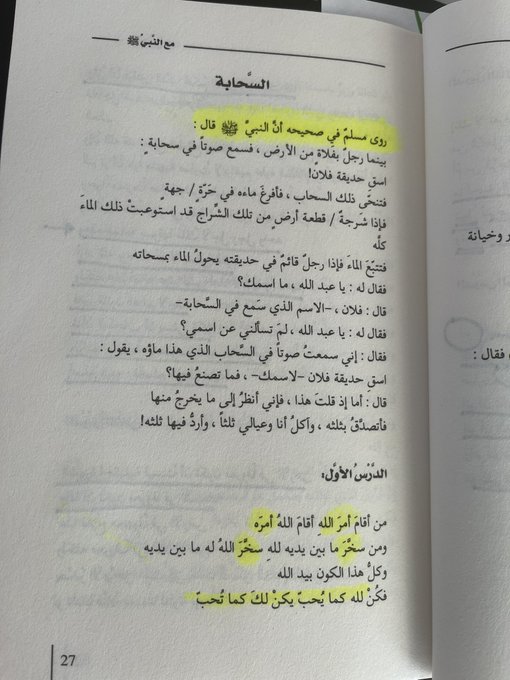 مع النّبيّ ﷺ
السَّحابة
روى مسلمٌ في صحيحه أنَّ النبيَّ ﷺ قال :
بينما رجلٌ بفَلاةٍ من الأرض ، فسمع صوتاً في سحابةٍ :
اسقِ حديقة فلان!
فتنحَّى ذلك السحاب ، فأفرغَ ماءه في حَرَّةٍ / جهةٍ
فإذا شَرجةٌ / قطعة أرضٍ من تلك الشِّراج قد استوعبتْ ذلك الماءَ
كلَّه
فتتبّعَ الماءَ فإذا رجلٌ قائمٌ في حديقته يحولُ الماء بمسحاته
فقال له : يا عبد الله ، ما اسمك؟
قال : فلان ، –الاسم الذي سَمع في السَّحابة–
فقال له : يا عبد الله ، لمَ تسألني عن اسمي؟
فقال : إني سمعتُ صوتاً في السَّحاب الذي هذا ماؤه ، يقول :
اسقِ حديقة فلان –لاسمك– ، فما تصنعُ فيها؟
قال : أما إذ قلتَ هذا ، فإني أنظرُ إلى ما يخرجُ منها
فأتصدَّقُ بثلثه ، وآكلُ أنا وعيالي ثلثاً ، وأردُّ فيها ثلثه!
الدَّرْسُ الأوَّل:
من أقامَ أمرَ اللهِ أقامَ اللهُ أمرَه
ومن سخَّرَ ما بين يديه للهِ سخَّرَ اللهُ له ما بين يديه
وكلُّ هذا الكون بيد الله
فكُنْ لله كما يُحبّ يكنْ لكَ كما تُحبّ
27
ر وخيانة
فقال :